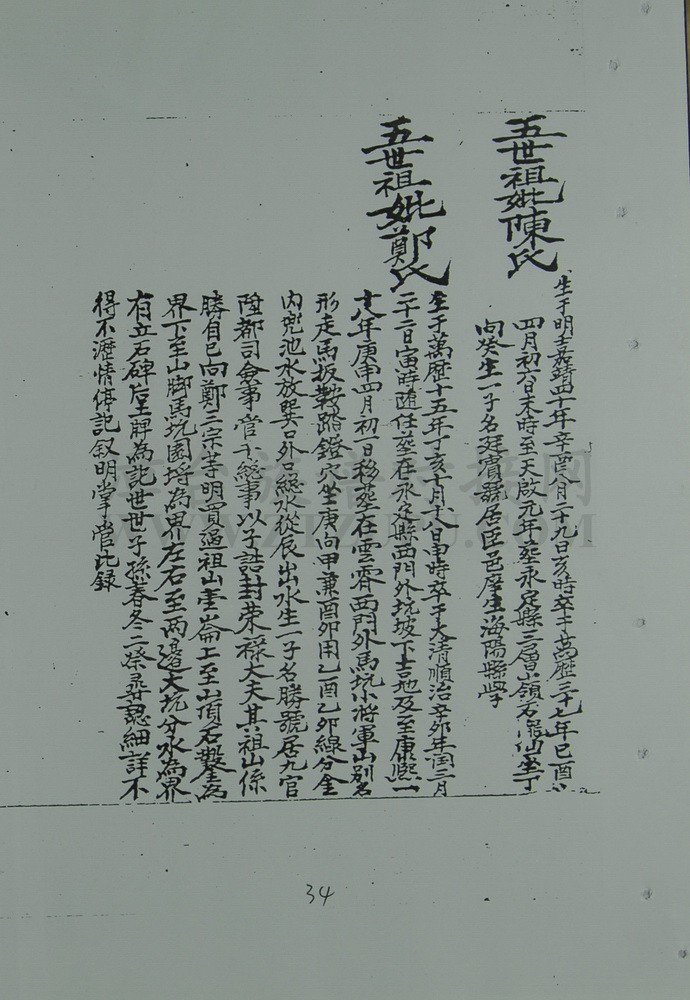 五世祖妣陳氏
生于明嘉靖四十年辛酉八月二十九日亥時卒于萬歷三十七年己酉
四月初六日未時至天啟元年塟永定縣三層嶺石 仙塟丁
向癸生一子名廷賓號居臣邑庠生海陽縣學
五世祖妣鄭氏
生于萬歷十五年丁亥十月十八日申時卒于大清順治辛卯年閏三月
二十二日寅時随任塟在永定縣西門外坑坡下吉地及至康熙一
十八年庚申四月初一日移塟在雲霄西門外馬坑小將軍山别名
形走馬扳鞍踏鐙穴坐庚向甲兼酉卯用乙酉乙卯線分金
内兜池水放巽口外口總水從辰出水生一子名勝號居九官
陞都司僉事管千總事以子誥封榮祿大夫其祖山係
勝自己向鄭三宗等明買過祖山壹崙上至山頂石鑿為
界下至山脚馬坑園埒為界左右至两邉大坑分水為界
有立石碑后土牌為記世世子孫春冬二祭尋認細詳不
得不瀝情俻記叙明掌管此錄
34